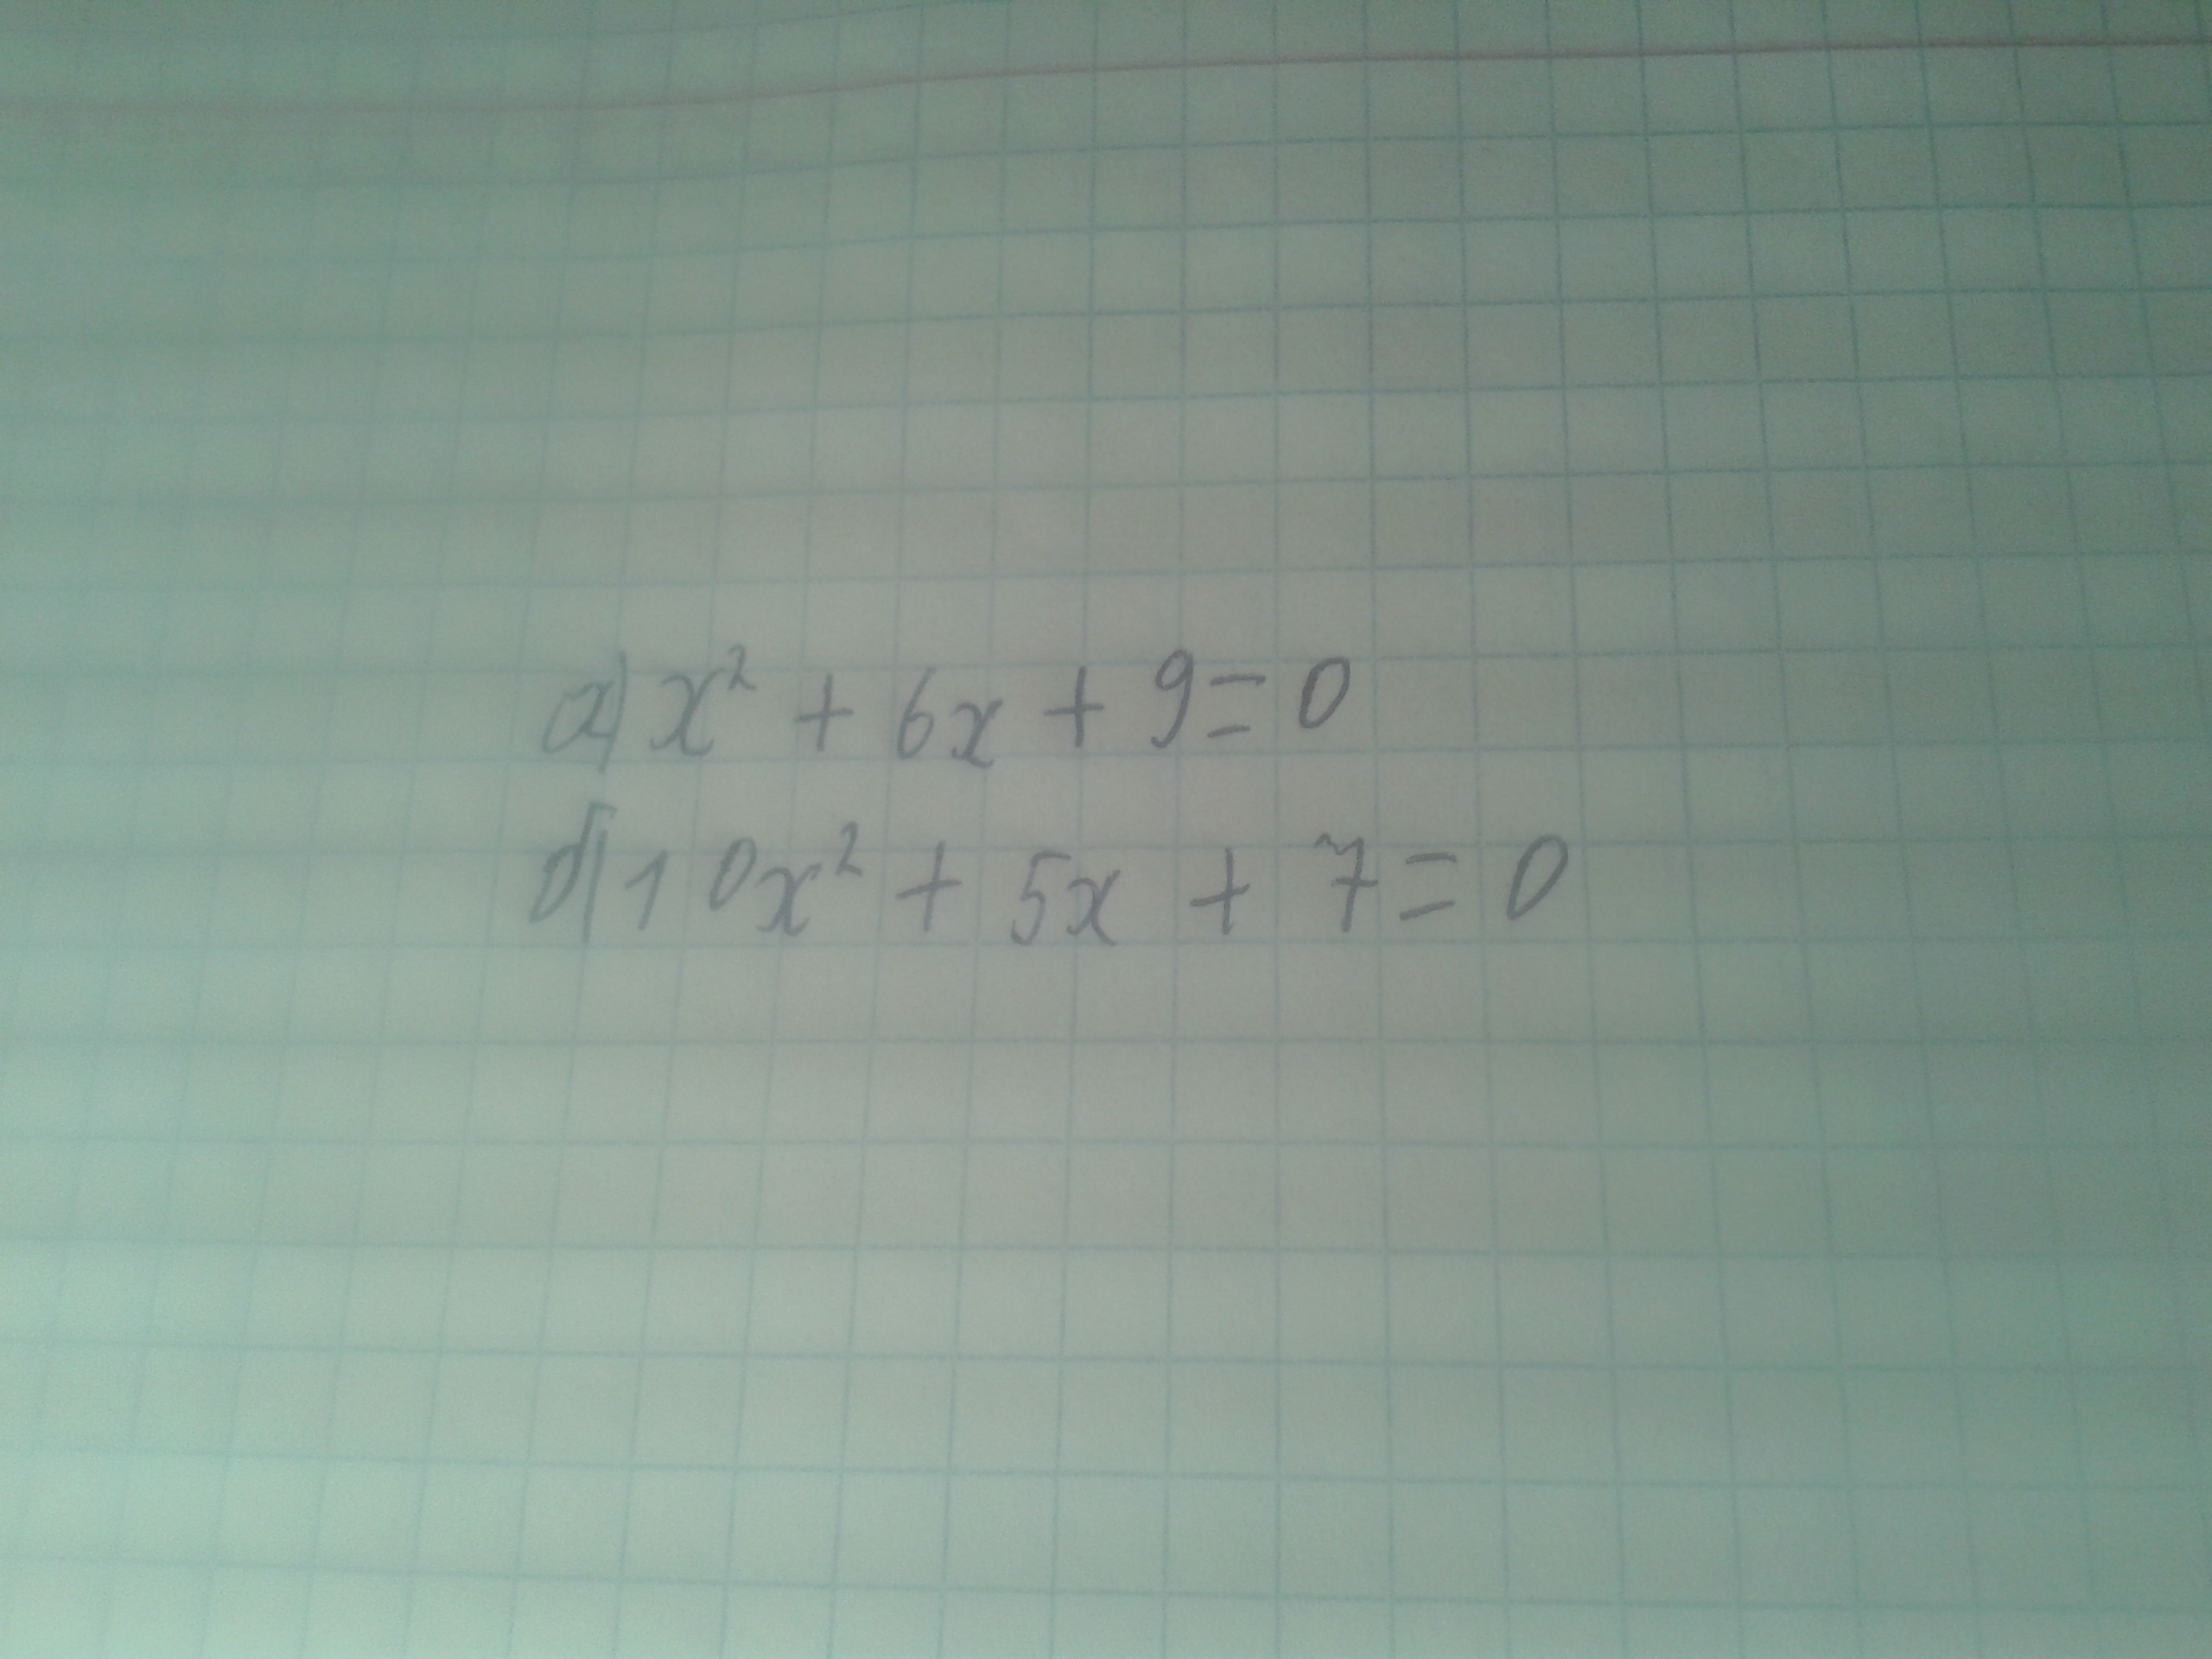 а) x² + 6x + 9 = 0
б) 10x² + 5x + 7 = 0